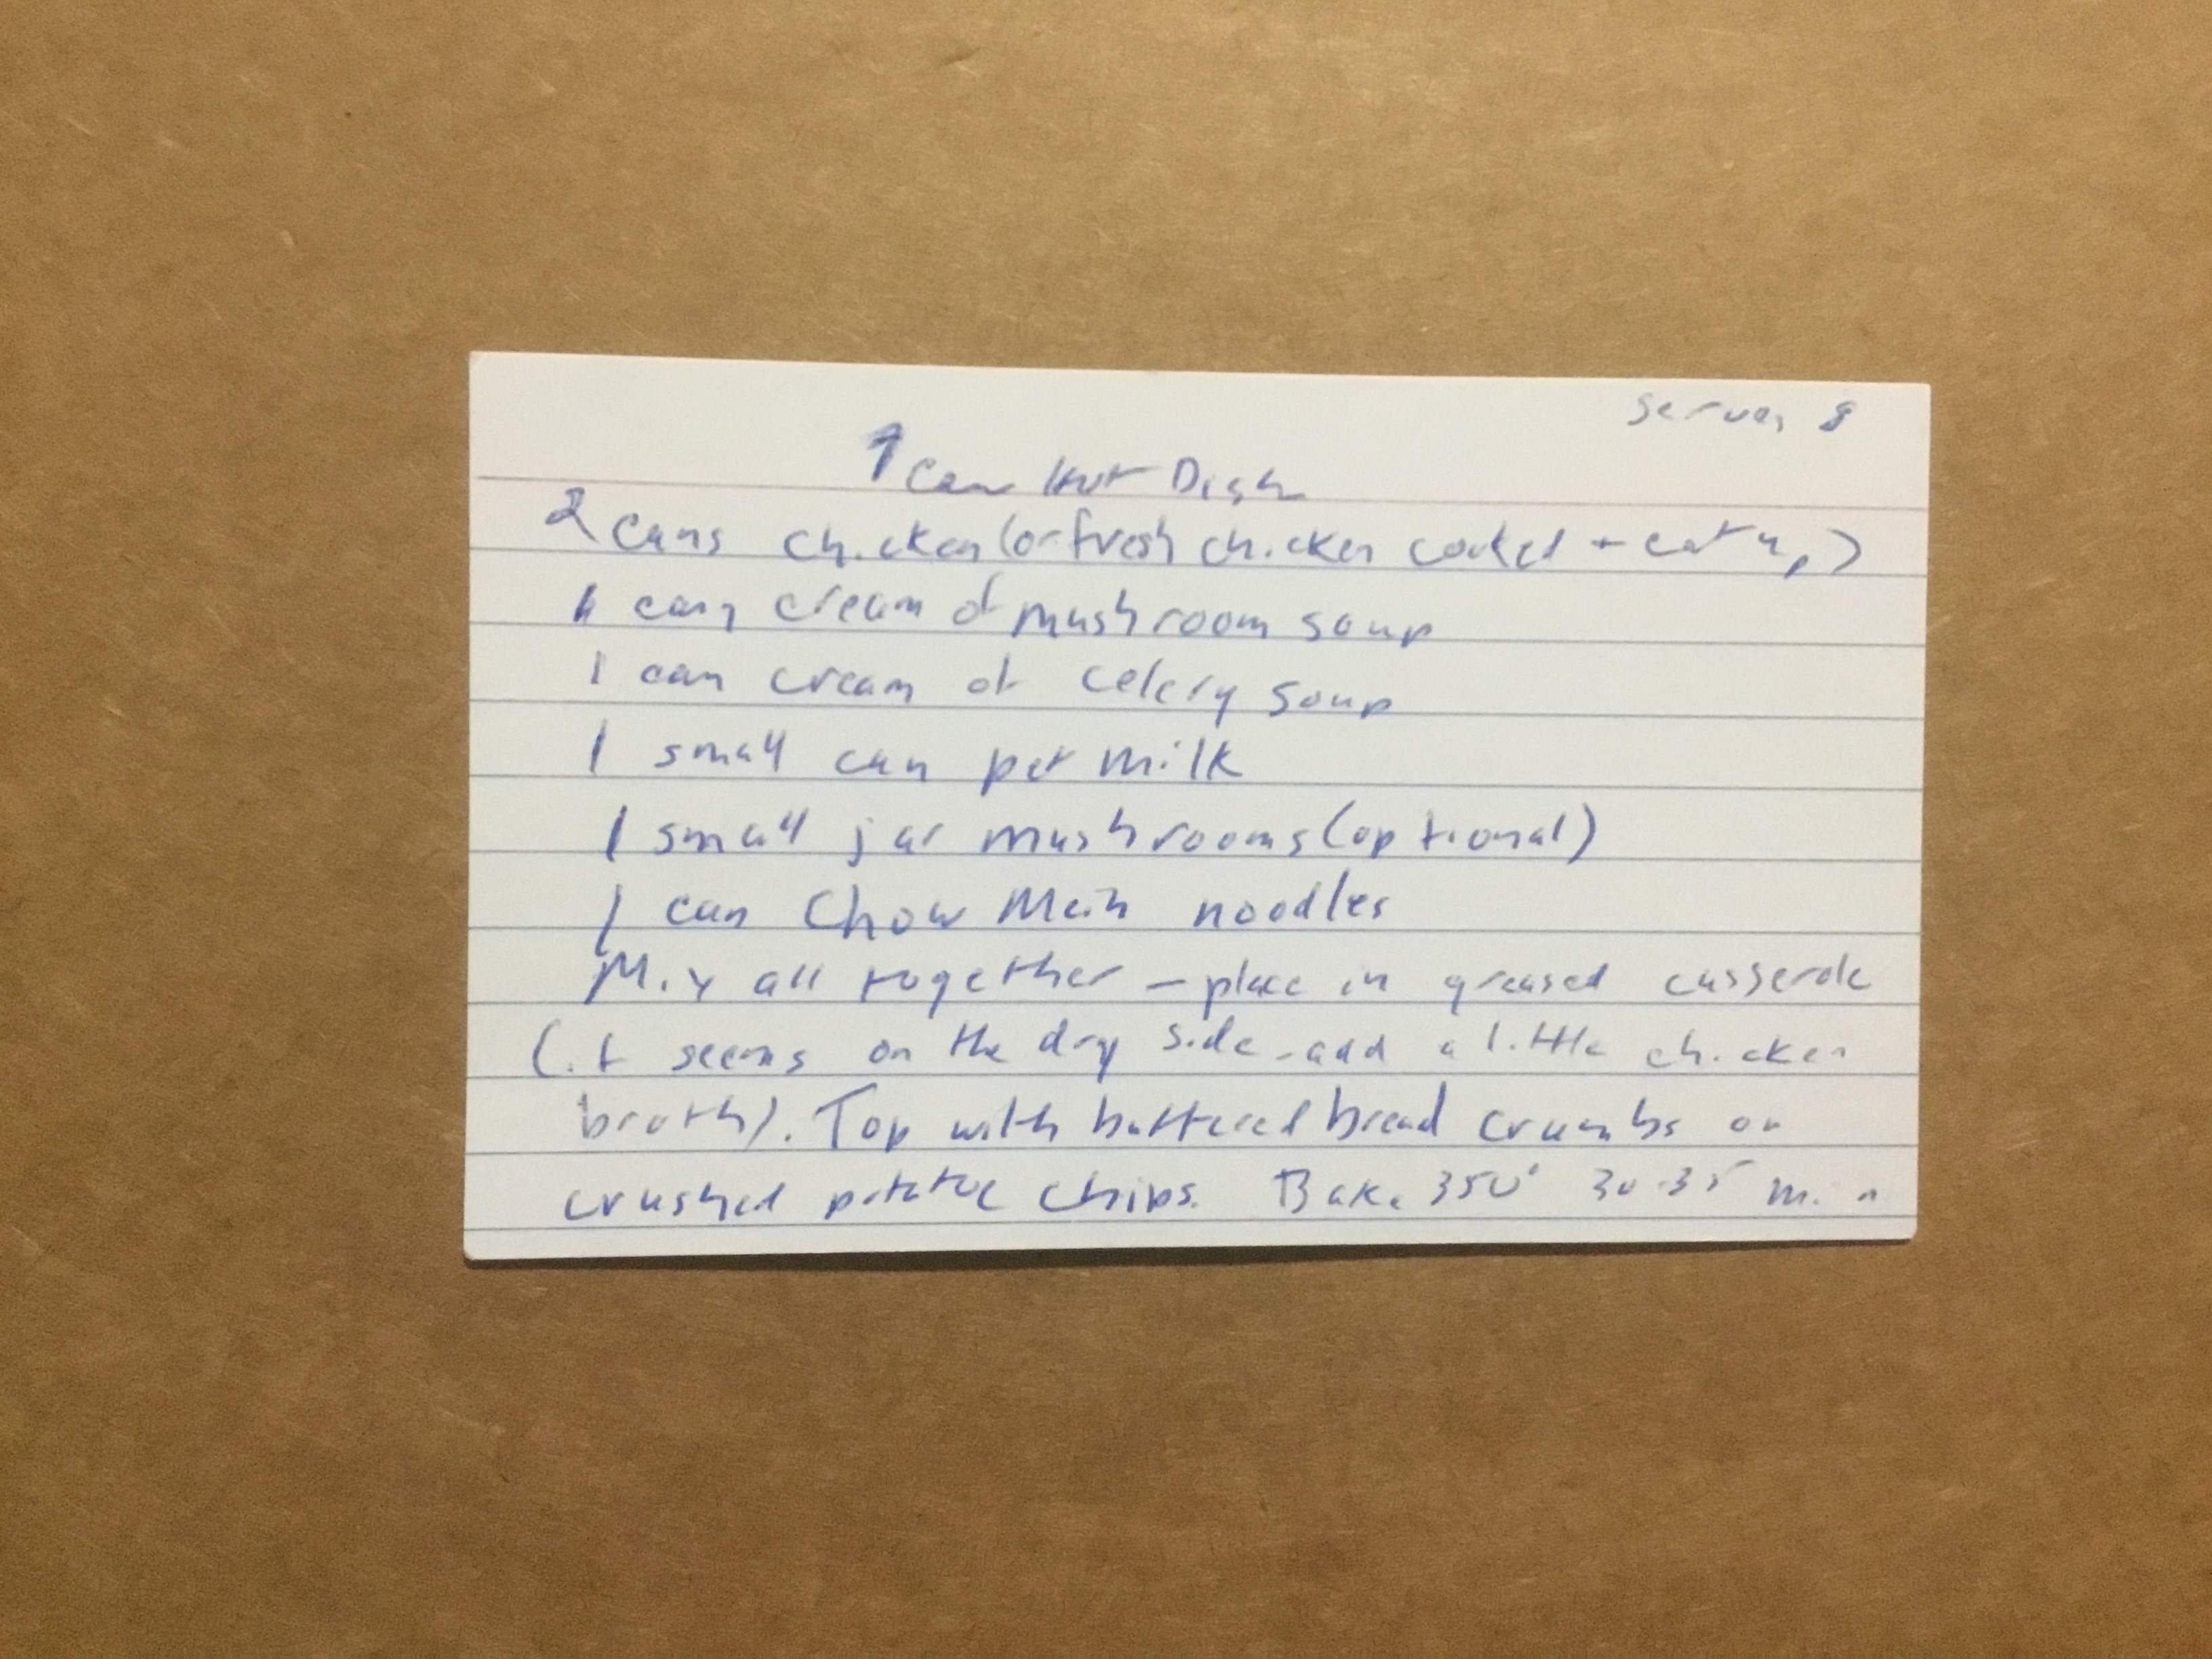 serves 8
Can Hot Dish
2 cans chicken (or fresh chicken cooked + cut up)
1 can cream of mushroom soup
1 can cream of celery soup
1 small can pet milk
1 small jar mushrooms (optional)
1 can Chow Mein noodles
Mix all together - place in greased casserole
(if seems on the dry side - add a little chicken
broth). Top with buttered bread crumbs or
crushed potatoe chips. Bake 350° 30-35 min